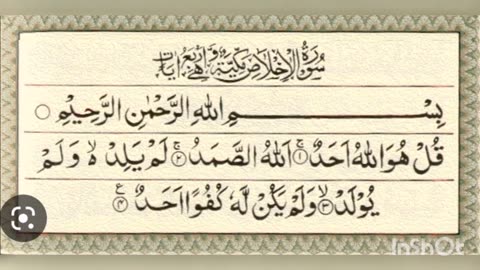 سُوْرَةُ الْاِخْلَاصِ مَكِّيَّةٌ وَّهِيَ اَرْبَعُ اٰيَاتٍ
بِسْمِ اللهِ الرَّحْمٰنِ الرَّحِيْمِ ○
قُلْ هُوَ اللهُ اَحَدٌ ۚ﴿۱﴾ اَللهُ الصَّمَدُ ۚ﴿۲﴾ لَمْ يَلِدْ ۙ۬ وَلَمْ
يُوْلَدْ ۙ﴿۳﴾ وَلَمْ يَكُنْ لَّهٗ كُفُوًا اَحَدٌ ﴿۴﴾ ع
InShOt